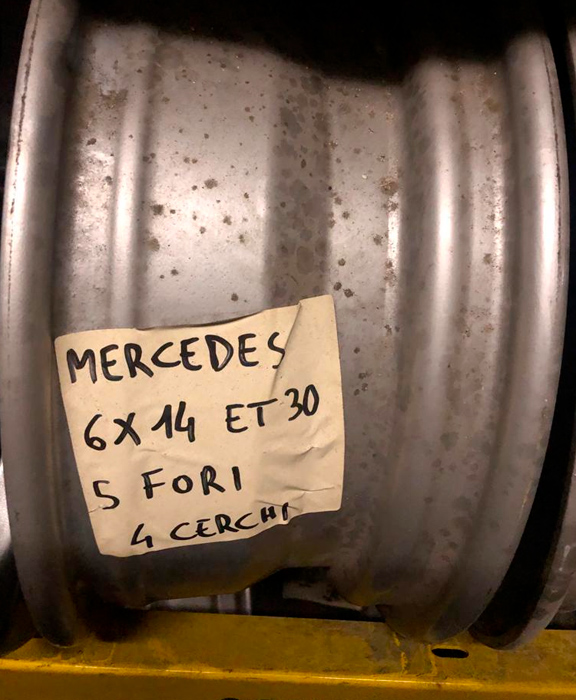 MERCEDES
6X14 ET 30
5 FORI
4 CERCHI